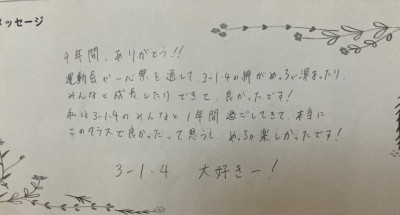 メッセージ
1年間、ありがとう!!
運動会や一心祭を通して、3-1-4の絆がめっちゃ深まったり、
みんなと成長したりできて、良かったです!
私は3-1-4のみんなと1年間過ごしてきて、本当に
このクラスで良かったって思うし、めっちゃ楽しかったです!
3-1-4 大好きー!